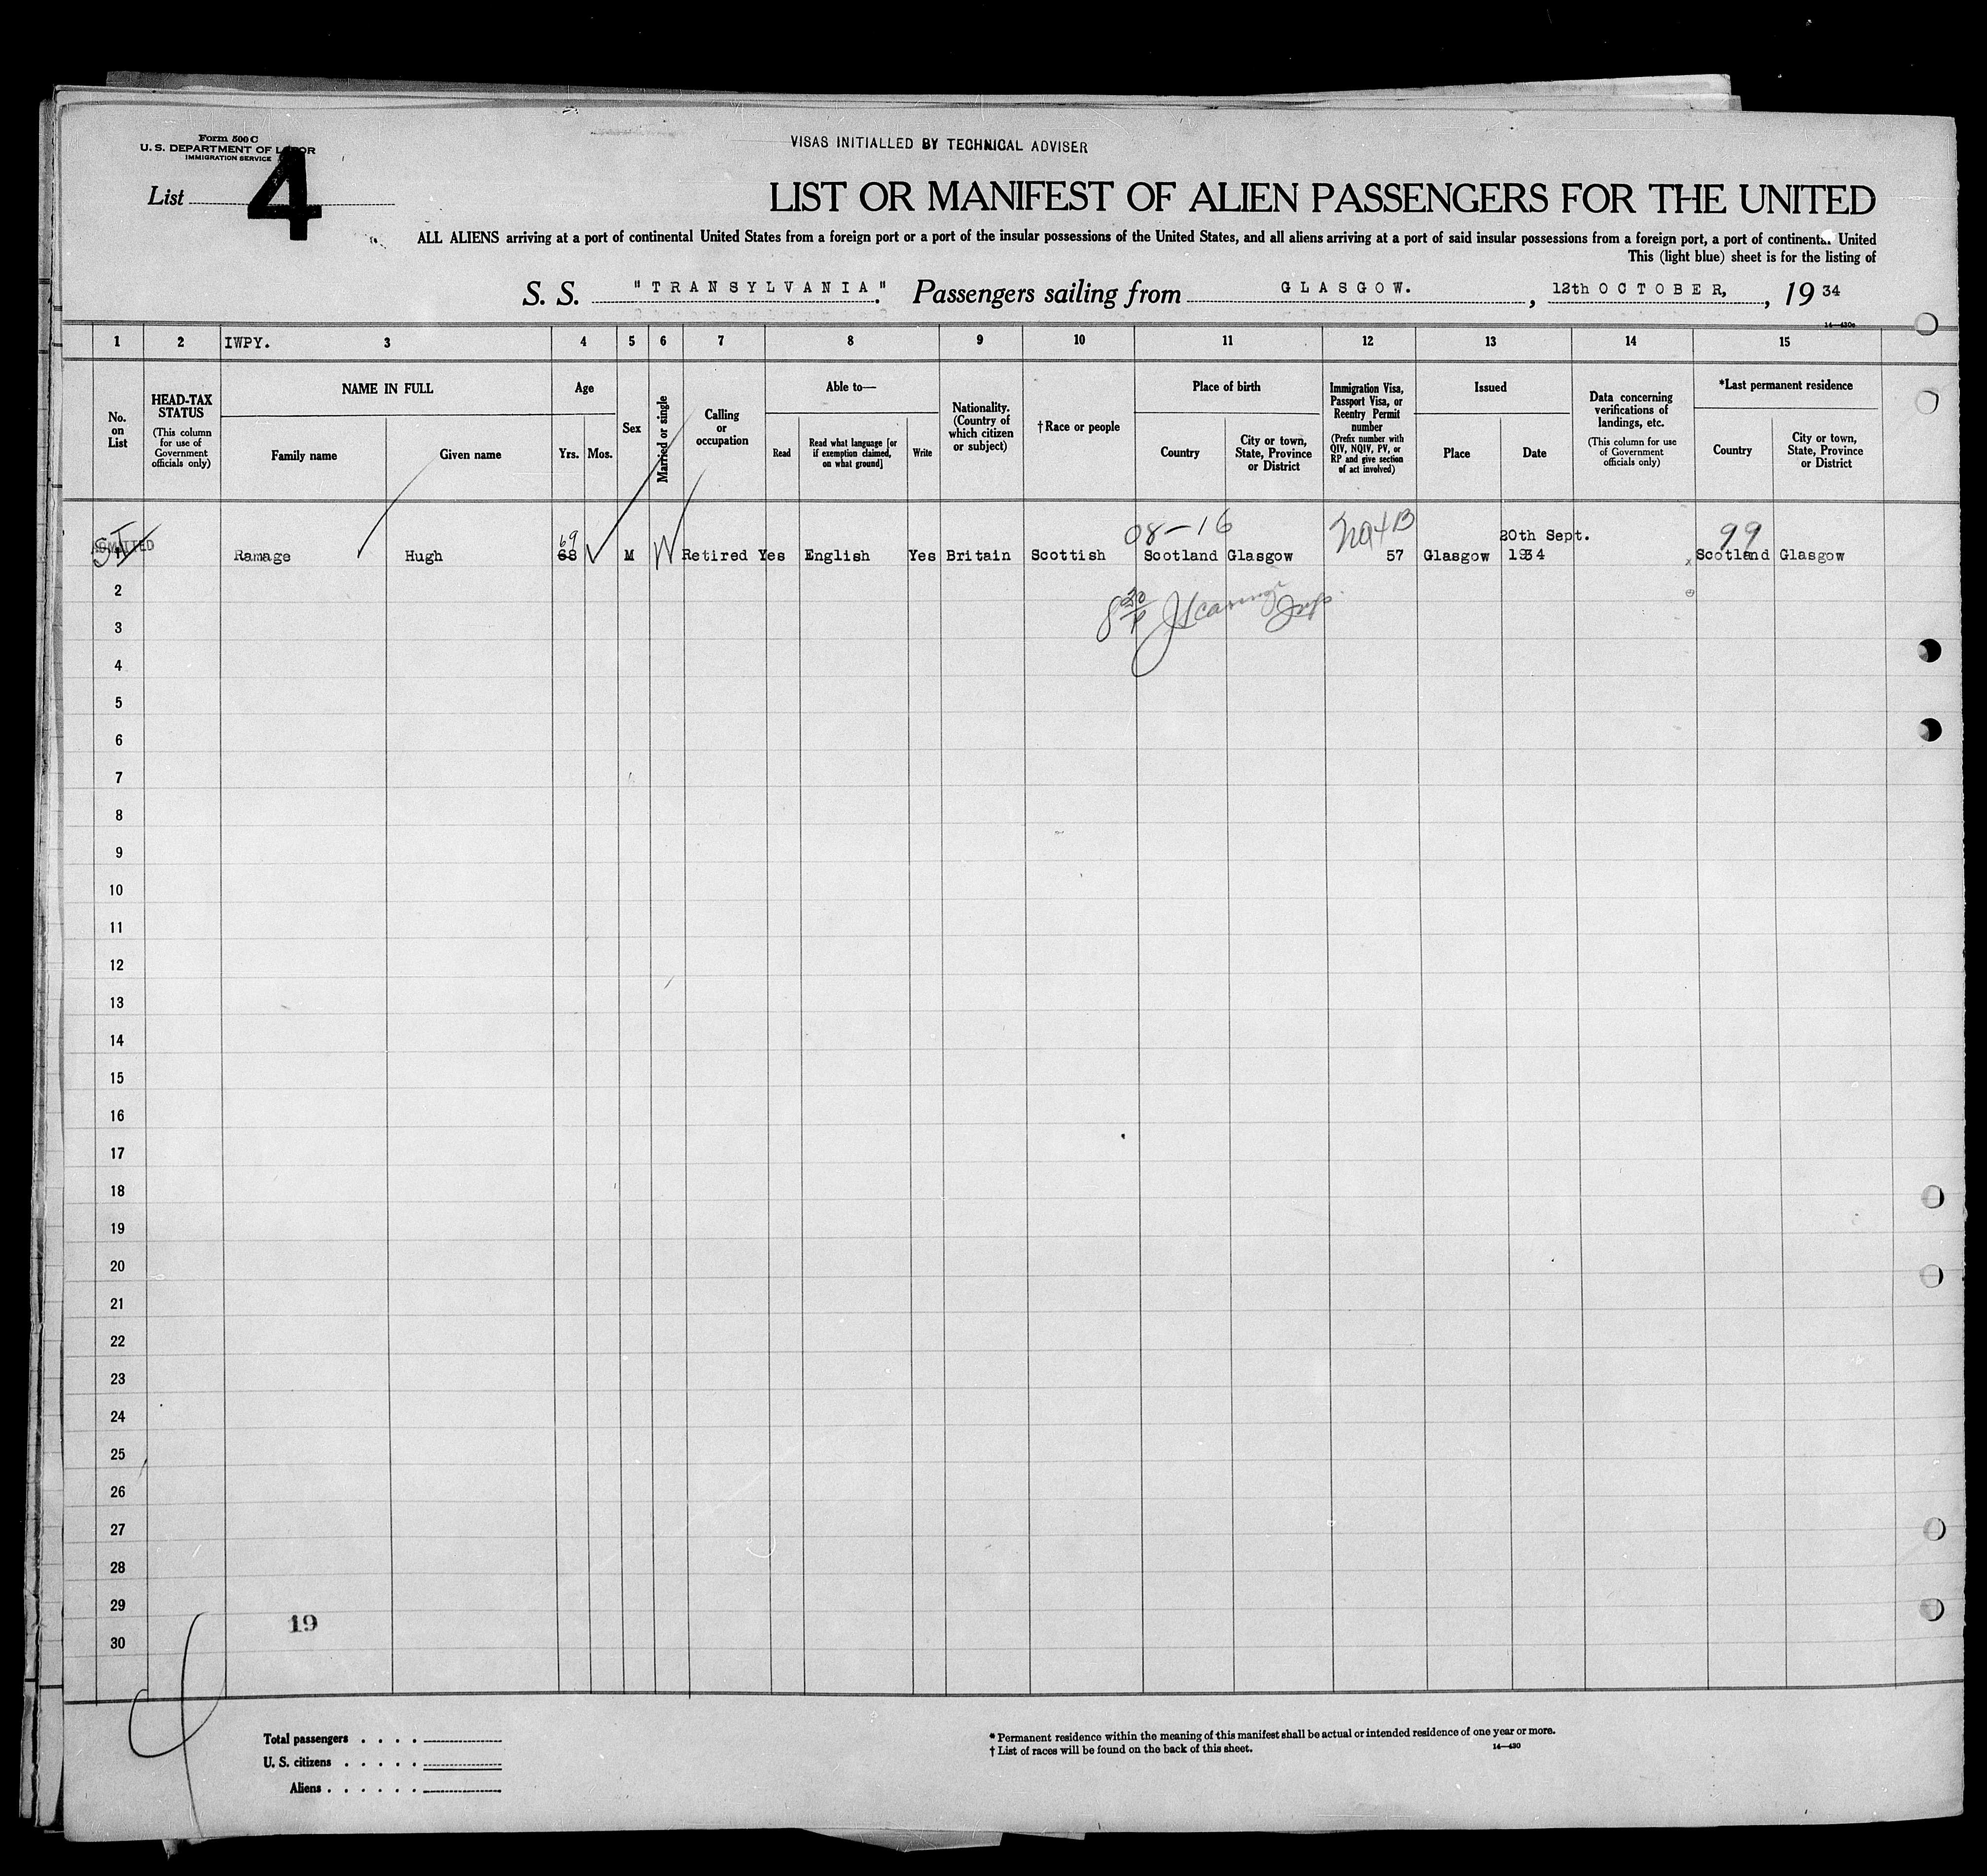 Form 500 C
U. S. DEPARTMENT OF LABOR
IMMIGRATION SERVICE
VISAS INITIALLED BY TECHNICAL ADVISER
List 4
LIST OR MANIFEST OF ALIEN PASSENGERS FOR THE UNITED
ALL ALIENS arriving at a port of continental United States from a foreign port or a port of the insular possessions of the United States, and all aliens arriving at a port of said insular possessions from a foreign port, a port of continental United
This (light blue) sheet is for the listing of
S. S. "TRANSYLVANIA". Passengers sailing from GLASGOW. , 12th OCTOBER, , 19 34
14—430c
1 2 IWPY. 3 4 5 6 7 8 9 10 11 12 13 14 15
No. on List
HEAD-TAX STATUS
(This column for use of Government officials only)
NAME IN FULL
Family name
Given name
Age
Yrs. Mos.
Sex
Married or single
Calling or occupation
Able to—
Read
Read what language [or if exemption claimed, on what ground]
Write
Nationality. (Country of which citizen or subject)
†Race or people
Place of birth
Country
City or town, State, Province or District
Immigration Visa, Passport Visa, or Reentry Permit number
(Prefix number with QIV, NQIV, PV, or RP and give section of act involved)
Issued
Place
Date
Data concerning verifications of landings, etc.
(This column for use of Government officials only)
*Last permanent residence
Country
City or town, State, Province or District
08-16
99
69
20th Sept.
SI ADMITTED 1 Ramage Hugh 68 M W Retired Yes English Yes Britain Scottish Scotland Glasgow 57 Glasgow 1934 x Scotland Glasgow
2
3
4
5
6
7
8
9
10
11
12
13
14
15
16
17
18
19
20
21
22
23
24
25
26
27
28
29
19
30
Total passengers . . . .
U. S. citizens . . . . .
Aliens . . . . . .
* Permanent residence within the meaning of this manifest shall be actual or intended residence of one year or more.
† List of races will be found on the back of this sheet.
14—430